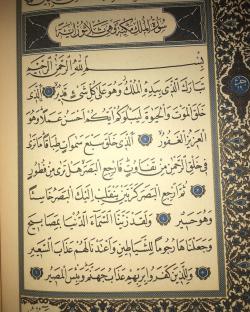 سورة الملك مكية وهي ثلاثون اية
بسم الله الرحمن الرحيم
تبارك الذي بيده الملك وهو على كل شيء قدير الذي
خلق الموت والحيوة ليبلوكم ايكم احسن عملا وهو
العزيز الغفور الذي خلق سبع سموات طباقا ما ترى
في خلق الرحمن من تفاوت فارجع البصر هل ترى من فطور
ثم ارجع البصر كرتين ينقلب اليك البصر خاسئا
وهو حسير ولقد زينا السماء الدنيا بمصابيح
وجعلناها رجوما للشياطين واعتدنا لهم عذاب السعير
وللذين كفروا بربهم عذاب جهنم وبئس المصير